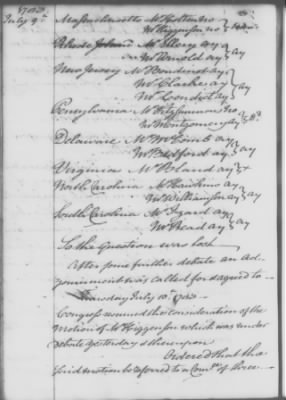 1783
July 9th
Massachusetts Mr Holten no
Mr Higginson no } no
Rhode Island Mr Ellery ay
Mr Arnold ay } ay
New Jersey Mr Boudinot ay
Mr Clarke ay
Mr Condict ay } ay
Pennsylvania Mr Fitzsimmons no
Mr Montgomery ay } Dd
Delaware Mr McComb ay
Mr Bedford ay } ay
Virginia Mr Bland ay
North Carolina Mr Hawkins ay
Mr Williamson ay } ay
South Carolina Mr Izard ay
Mr Read ay } ay
So the Question was lost
After some further debate an ad-
journment was called for & agreed to
Thursday July 10. 1783
Congress resumed the consideration of the
Motion of Mr Higginson which was under
debate yesterday & thereupon
Ordered that the
said motion be referred to a Comee of three